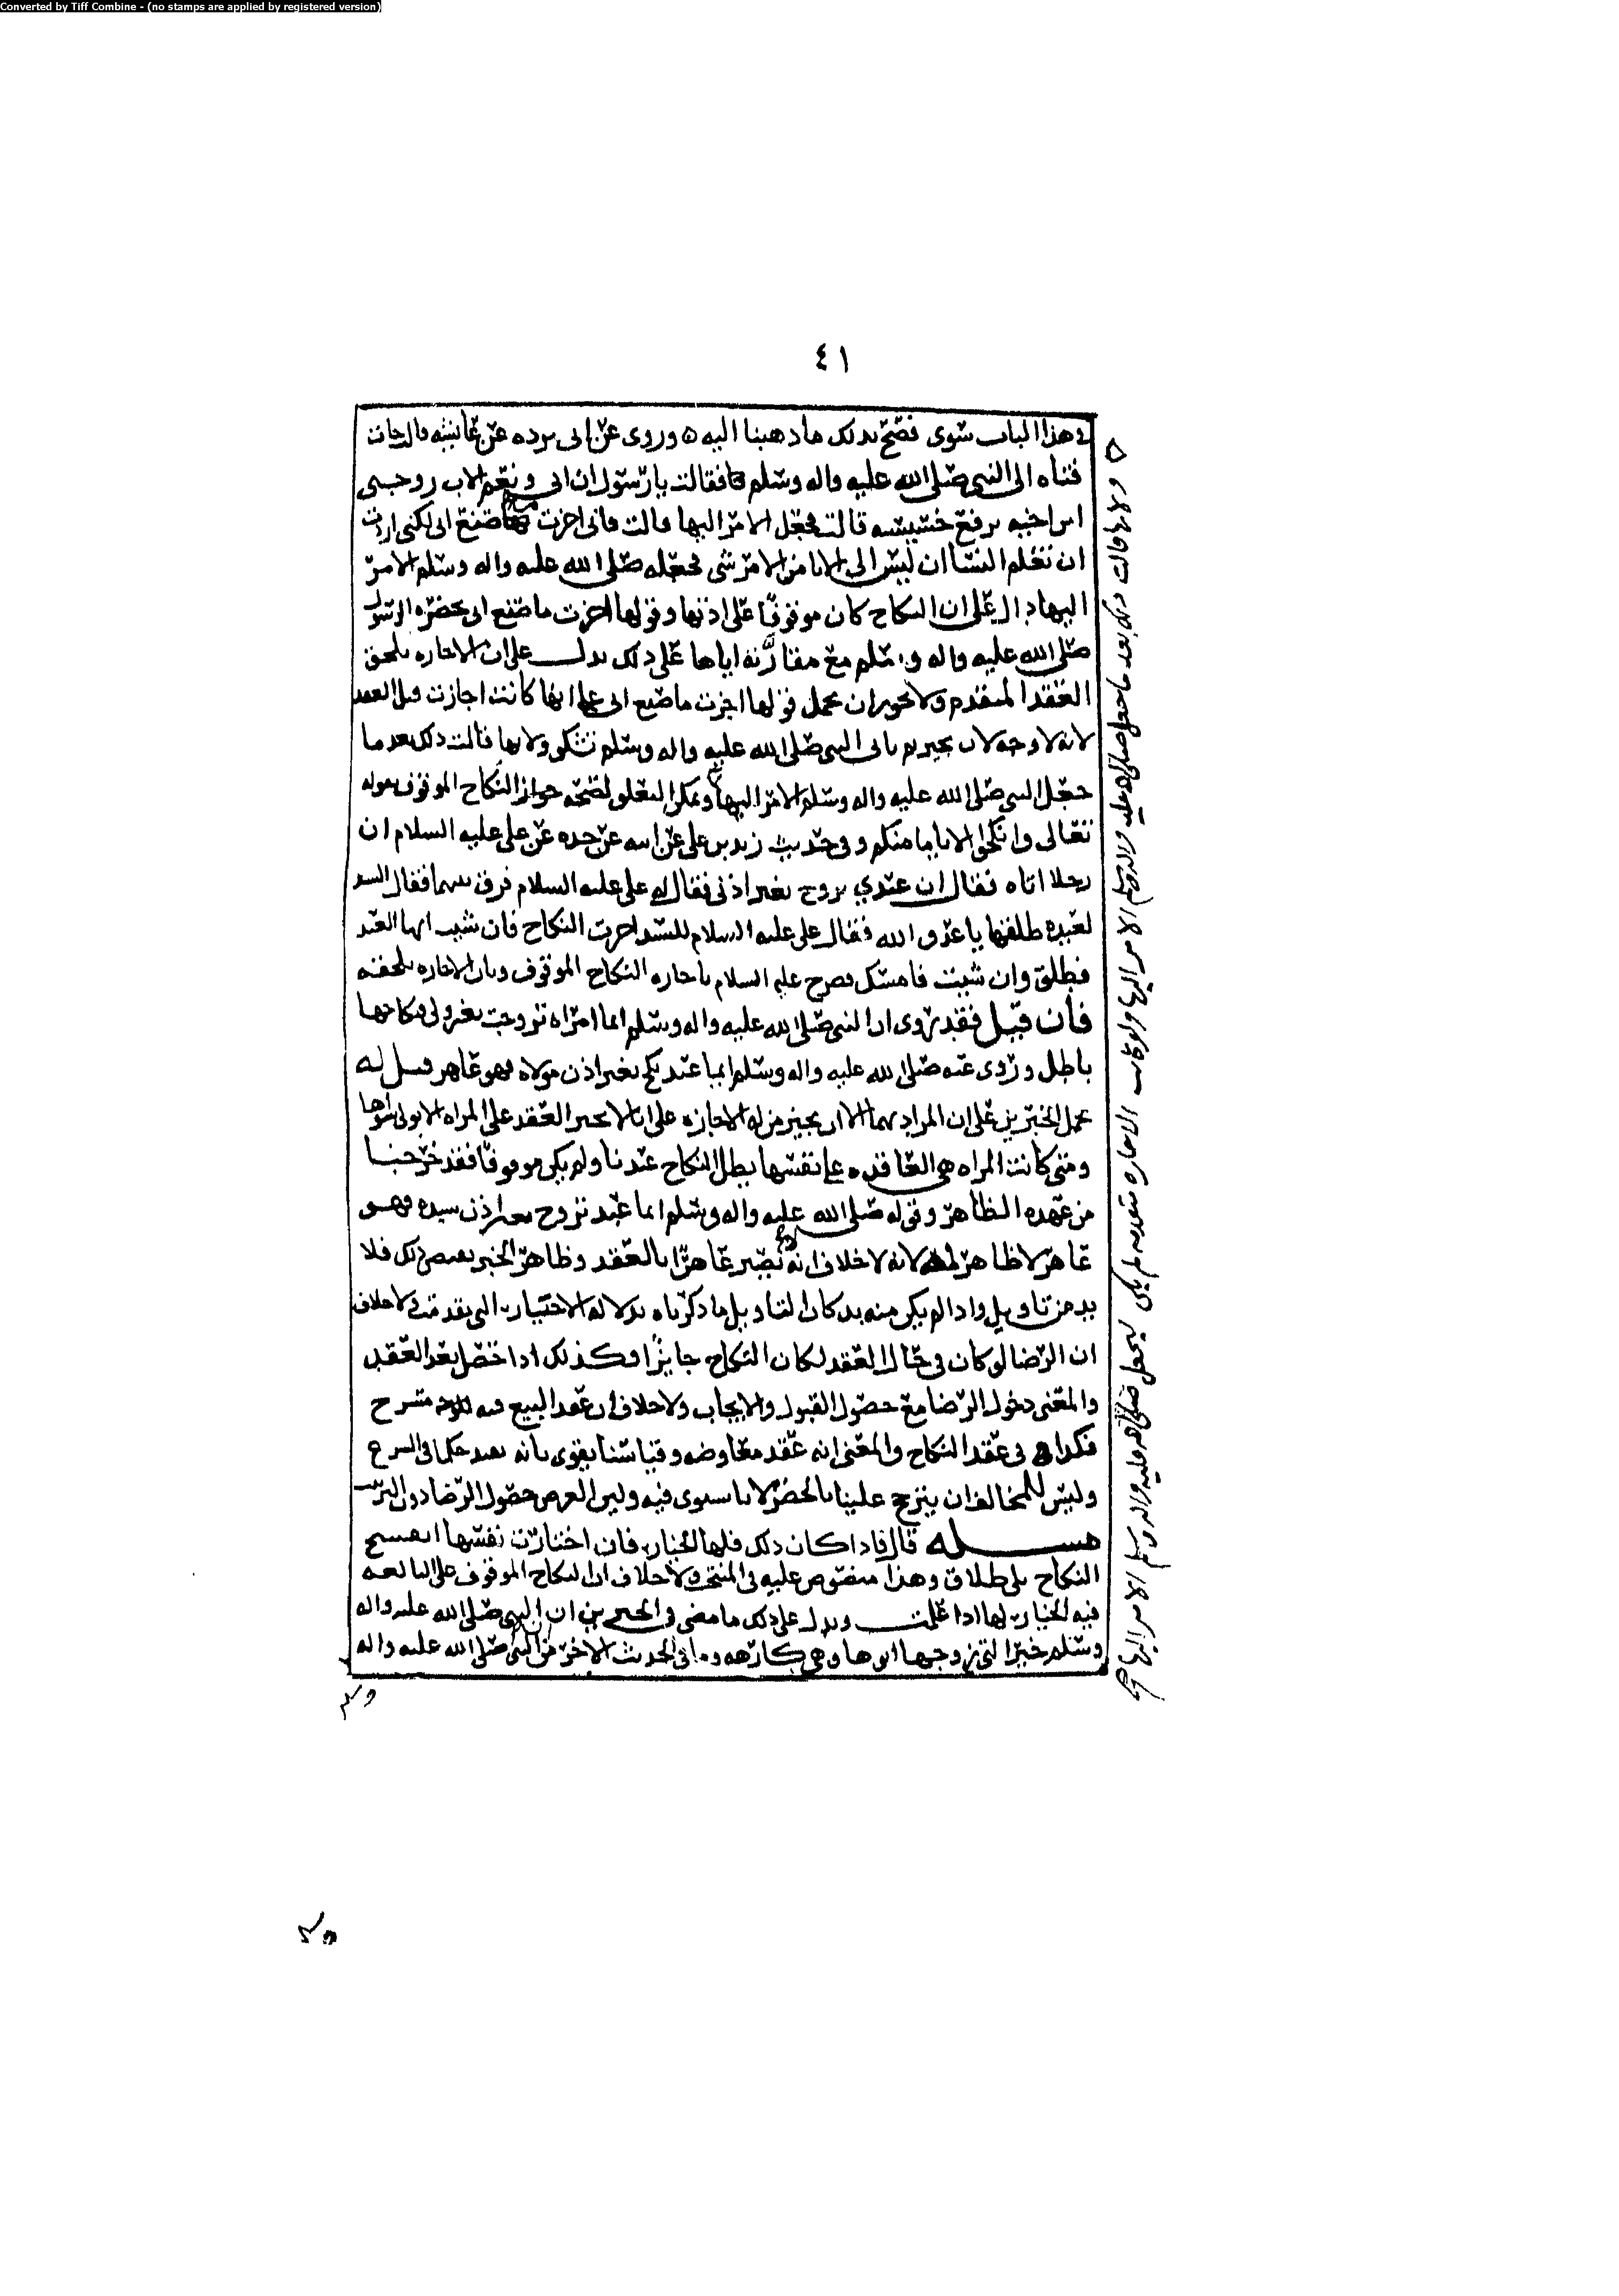 Converted by Tiff Combine - (no stamps are applied by registered version)
٤١
في هذا الباب سوى فصح بذلك ما ذهبنا اليه ه وروى عن ابى برده عن عايشه قالت جات
فتاه الى النبي صلى الله عليه واله وسلم فقالت يا رسول ان ابى ونعم الاب زوجنى
ابن اخيه يرفع خسيسته قالت فجعل الامر اليها قالت فانى اجزت ما صنع ابى لكنى اردت
ان تعلم النسا ان ليس الى الابا من الامر شى فجعله صلى الله عليه واله وسلم الامر
اليها دال على ان النكاح كان موقوفا على اذنها وقولها اجزت ما صنع ابى بحضره الرسول
صلى الله عليه واله وسلم مع مقارنه اياها على ذلك يدل على ان الاجازه تلحق
العقد المتقدم ولا يجوز ان يحمل قولها اجزت ما صنع ابى على انها كانت اجازت قبل العقد
لانه لا وجه لان يجيز ثم ياتى النبي صلى الله عليه واله وسلم تشكى ولانها قالت ذلك بعد ما
جعل النبي صلى الله عليه واله وسلم الامر اليها ويمكن التعلق لصحه جواز النكاح الموقوف بقوله
تعالى وانكحوا الايامى منكم وفي حديث زيد بن على عن ابيه عن جده عن على عليه السلام ان
رجلا اتاه فقال ان عبدي تزوج بغير اذنى فقال له على عليه السلام فرق بينهما فقال السيد
لعبده طلقها يا عدو الله فقال على عليه السلام للسيد اجزت النكاح فان شيت ايها العبد
فطلق وان شيت فامسك فصرح عليه السلام باجازه النكاح الموقوف وبان الاجازه تلحقه
فان قيل فقد روى ان النبي صلى الله عليه واله وسلم ايما امراه تزوجت بغير ولى فنكاحها
باطل وروى عنه صلى الله عليه واله وسلم ايما عبد نكح بغير اذن مولاه فهو عاهر قيل له
نحمل الخبرين على ان المراد بهما الا ان يجيز من له الاجازه على انا لا نجيز العقد على المراه الا لولى سواها
ومتى كانت المراه هى العاقده على نفسها بطل النكاح عندنا ولم يكن موقوفا فقد خرجنا
من عهده الظاهر وقوله صلى الله عليه واله وسلم ايما عبد تزوج بغير اذن سيده فهو
عاهر لا ظاهر له لانه لا خلاف انه لا يصير عاهرا بالعقد وظاهر الخبر يقتضى ذلك فلا
بد من تاويل واذا لم يكن منه بد كان التاويل ما ذكرناه بدلاله الاخبار التى تقدمت ولا خلاف
ان الرضا لو كان في حال العقد لكان النكاح جايزا وكذلك اذا حصل بعد العقد
والمعنى دخول الرضا مع حصول القبول والايجاب ولا خلاف ان عقد البيع فيه
فكذلك في عقد النكاح والمعنى انه عقد معاوضه وقياسنا يقوى بانه يفيد حكما في الشرع
وليس للمخالف ان يترجح علينا بالحضر لانا نستوى فيه وليس الغرض حصول الرضا دون
مسله قال فاذا كان ذلك فلها الخيار فان اختارت نفسها انفسخ
النكاح بلا طلاق وهذا منصوص عليه في المنتخب ولا خلاف ان النكاح الموقوف على البالغه
فيه الخيار لها اذا علمت ويدل على ذلك ما مضى في الخبرين ان النبي صلى الله عليه واله
وسلم خير التى زوجها ابوها وهى كارهه وما في الحديث الاخر من ان النبي صلى الله عليه واله
وسلم
ولانها قالت ذلك بعد ما جعل صلى الله عليه واله وسلم الامر اليها ولو كانت الاجازه متقدمه لم يكن ليجعل صلى الله عليه واله وسلم الامر اليها صح